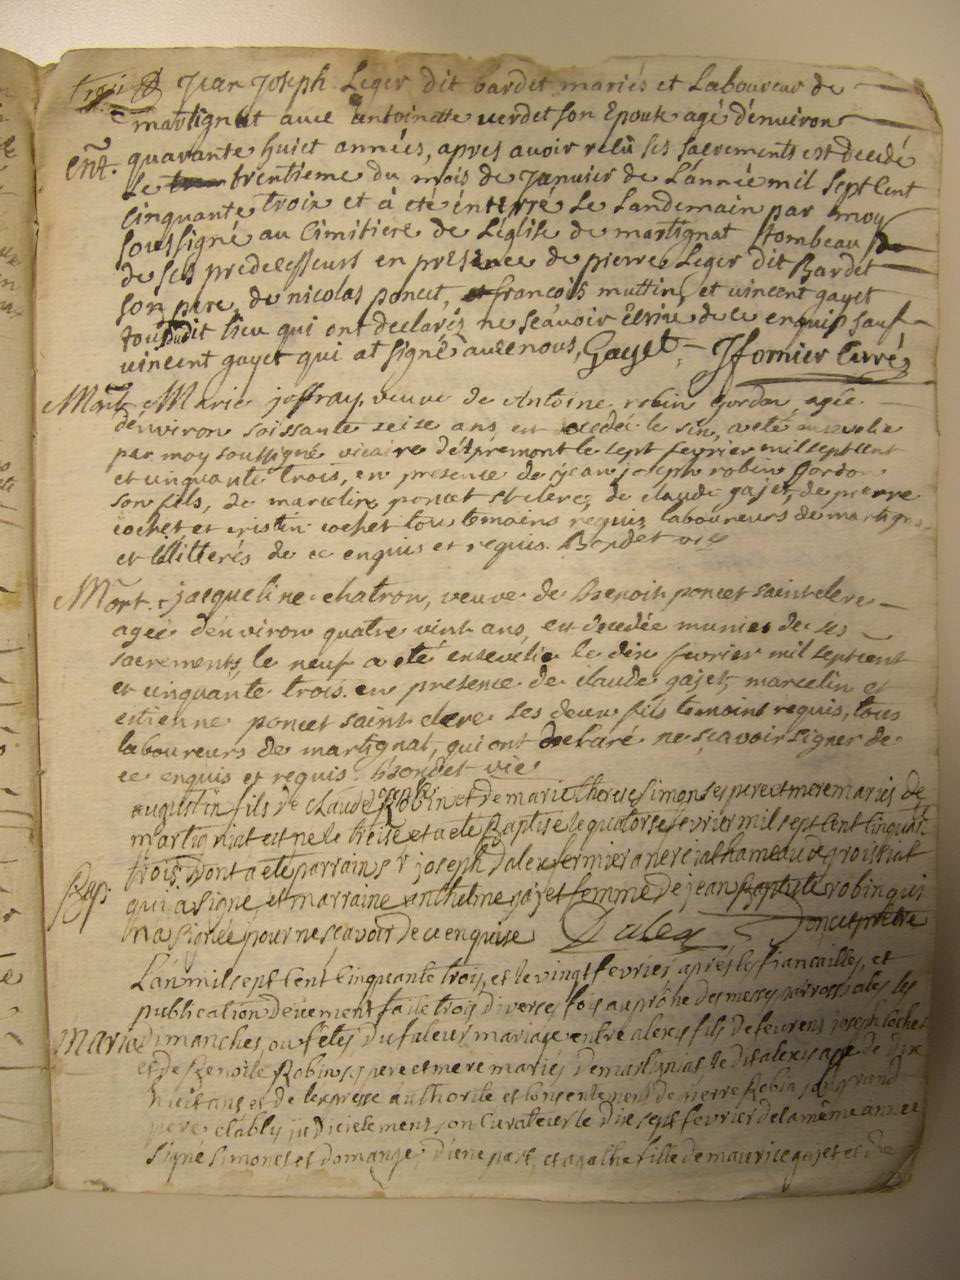 Jean Joseph Leger dit bardet mariés et Laboureur de
martignat avec antoinette verdet son Epouse agé d'environ
Ent. quarante huict années, apres avoir recû ses sacrements est decedé
Le trentieme du mois de Janvier de L'année mil sept Cent
Cinquante trois et à eté enterré Le Landemain par moy
soussigné au Cimitiere de L'église de martignat tombeau
de ses predecesseurs en presence de pierre Leger dit Bardet
son pere, de nicolas poncet, francois muttin, et vincent gayet
tous dudit lieu qui ont declarés ne scavoir écrire de ce enquis sauf
vincent gayet qui at signé avec nous, Gayet, Jfornier Curé
Mort. Marie joffray veuve de Antoine robin Gordon, agée
d'environ soissante seise ans, est decedée le six, a eté ensevelie
par moy soussigné vicaire d'apremont le sept fevrier mil sept cent
et cinquante trois, en presence de jean joseph robin Gordon
son fils, de marcelin poncet st clerc, de claude gajet, de pierre
cochet et cristin cochet tous temoins requis laboureurs de martignat
et illitterés de ce enquis et requis. Bondet vic
Mort. jacqueline chatron, veuve de benoit poncet saint clerc
agée d'environ quatre vint ans, est decedée munies de ses
sacrements, le neuf a eté ensevelie le dix fevrier mil sept cent
et cinquante trois. en presence de claude gajet, marcelin et
estienne poncet saint clerc ses deux fils temoins requis, tous
laboureurs de martignat, qui ont declaré ne sçavoir signer de
ce enquis et requis. Bondet vic
augustin fils de claude joseph Robin et de marie therese simon ses pere et mere mariés de
martigniat est ne le treise et a ete Baptise le quatorse fevrier mil sept cent cinquante
trois dont a ete parrain sr joseph Dalex fermier a nerciat hameau de groissiat
Bap. qui a signe, et marraine anthelme gajet femme de jean Baptiste robin qui
n'a signée pour ne scavoir de ce enquise Dalex Poncet pretre
L'an mil sept cent cinquante trois, et le vingt fevrier après les fiancailles, et
publication dëuement faite trois diverses fois au prône des messes parrossiales les
Mariage dimanches, ou fêtes du futeur mariage entre alexis fils de feu rens joseph Cochet
et de Benoite Robin ses pere et mere mariés de martignat le dit alexis agé de dix
huict ans et de l'expresse authorite et consentement de pierre Robin son grand
pere etabli judicielement son Curateur le dixe sept fevrier de la même année
signé simonet et domange, d'une part, et agathe fille de maurice gajet et de